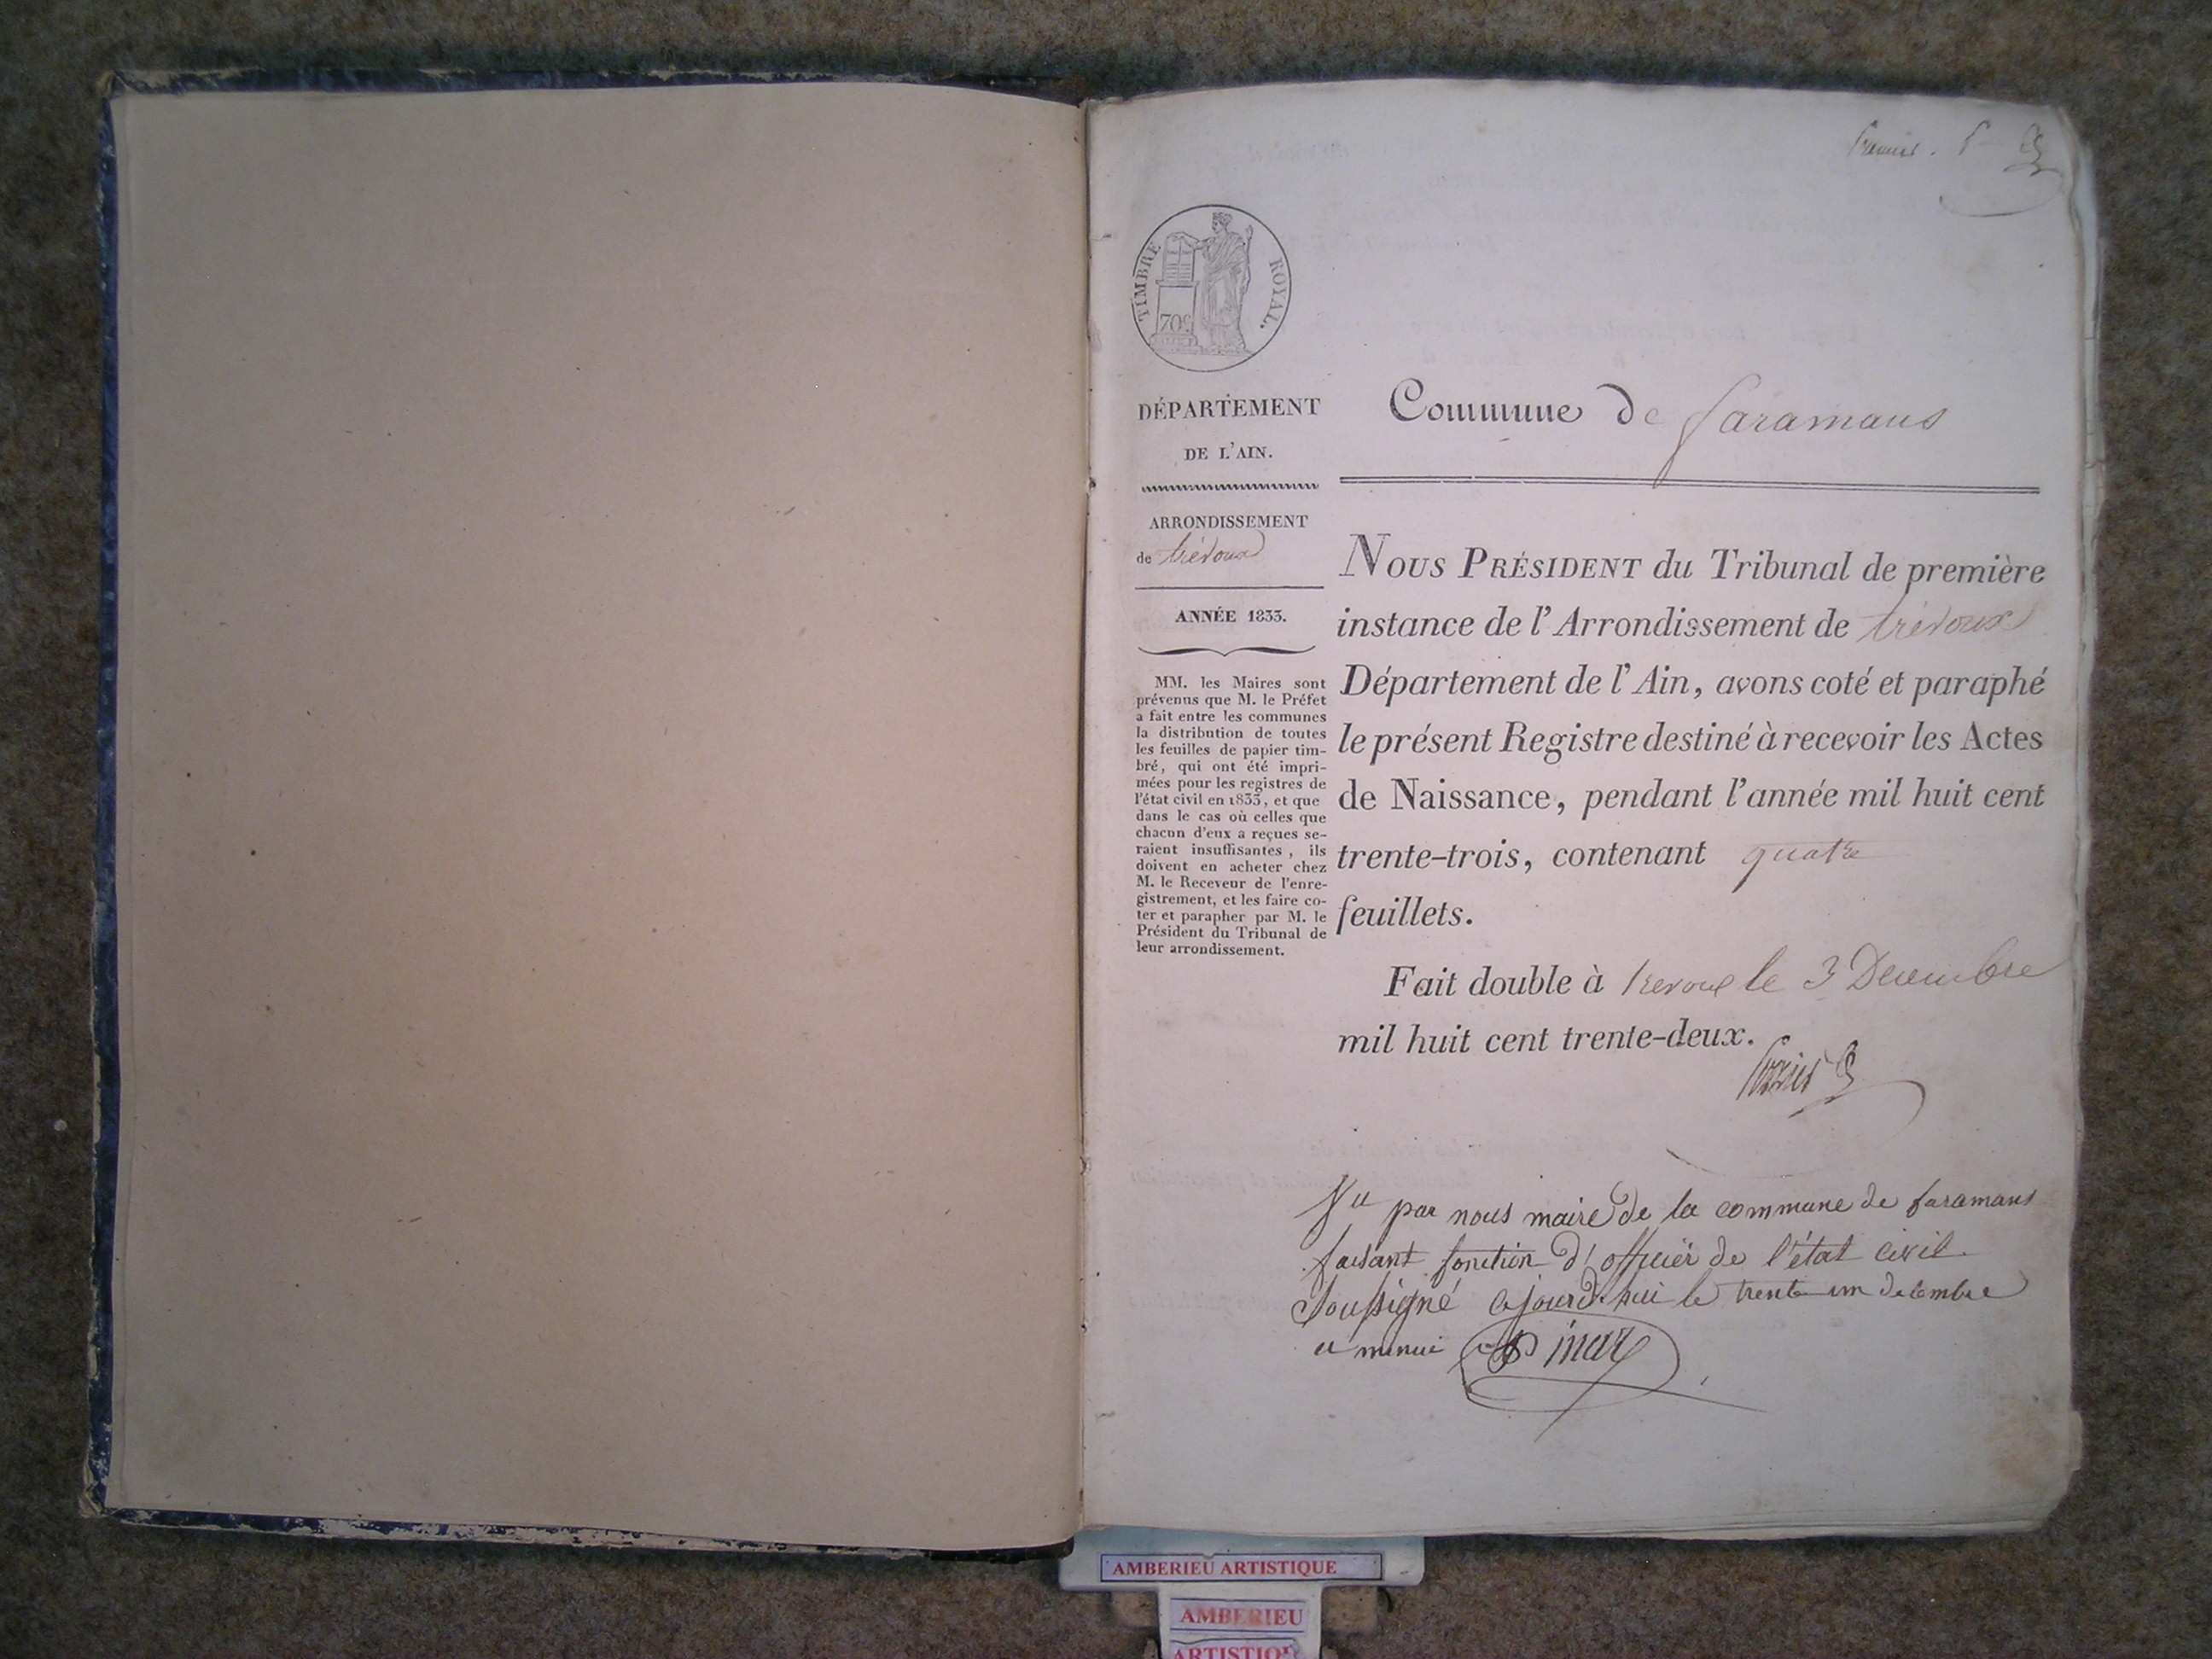 TIMBRE ROYAL.
70c
DÉPARTEMENT
DE L'AIN.
ARRONDISSEMENT
de trévoux
ANNÉE 1833.
MM. les Maires sont
prévenus que M. le Préfet
a fait entre les communes
la distribution de toutes
les feuilles de papier tim-
bré, qui ont été impri-
mées pour les registres de
l'état civil en 1833, et que
dans le cas où celles que
chacun d'eux a reçues se-
raient insuffisantes, ils
doivent en acheter chez
M. le Receveur de l'enre-
gistrement, et les faire co-
ter et parapher par M. le
Président du Tribunal de
leur arrondissement.
Premier.
Commune de faramans
NOUS PRÉSIDENT du Tribunal de première
instance de l'Arrondissement de trévoux
Département de l'Ain, avons coté et paraphé
le présent Registre destiné à recevoir les Actes
de Naissance, pendant l'année mil huit cent
trente-trois, contenant quatre
feuillets.
Fait double à trevoux le 3 Decembre
mil huit cent trente-deux.
Vu par nous maire de la commune de faramans
faisant fonction d'officier de l'état civil
Soussigné cejourd'hui le trente un decembre
a minui
AMBERIEU ARTISTIQUE
AMBERIEU
ARTISTIQUE